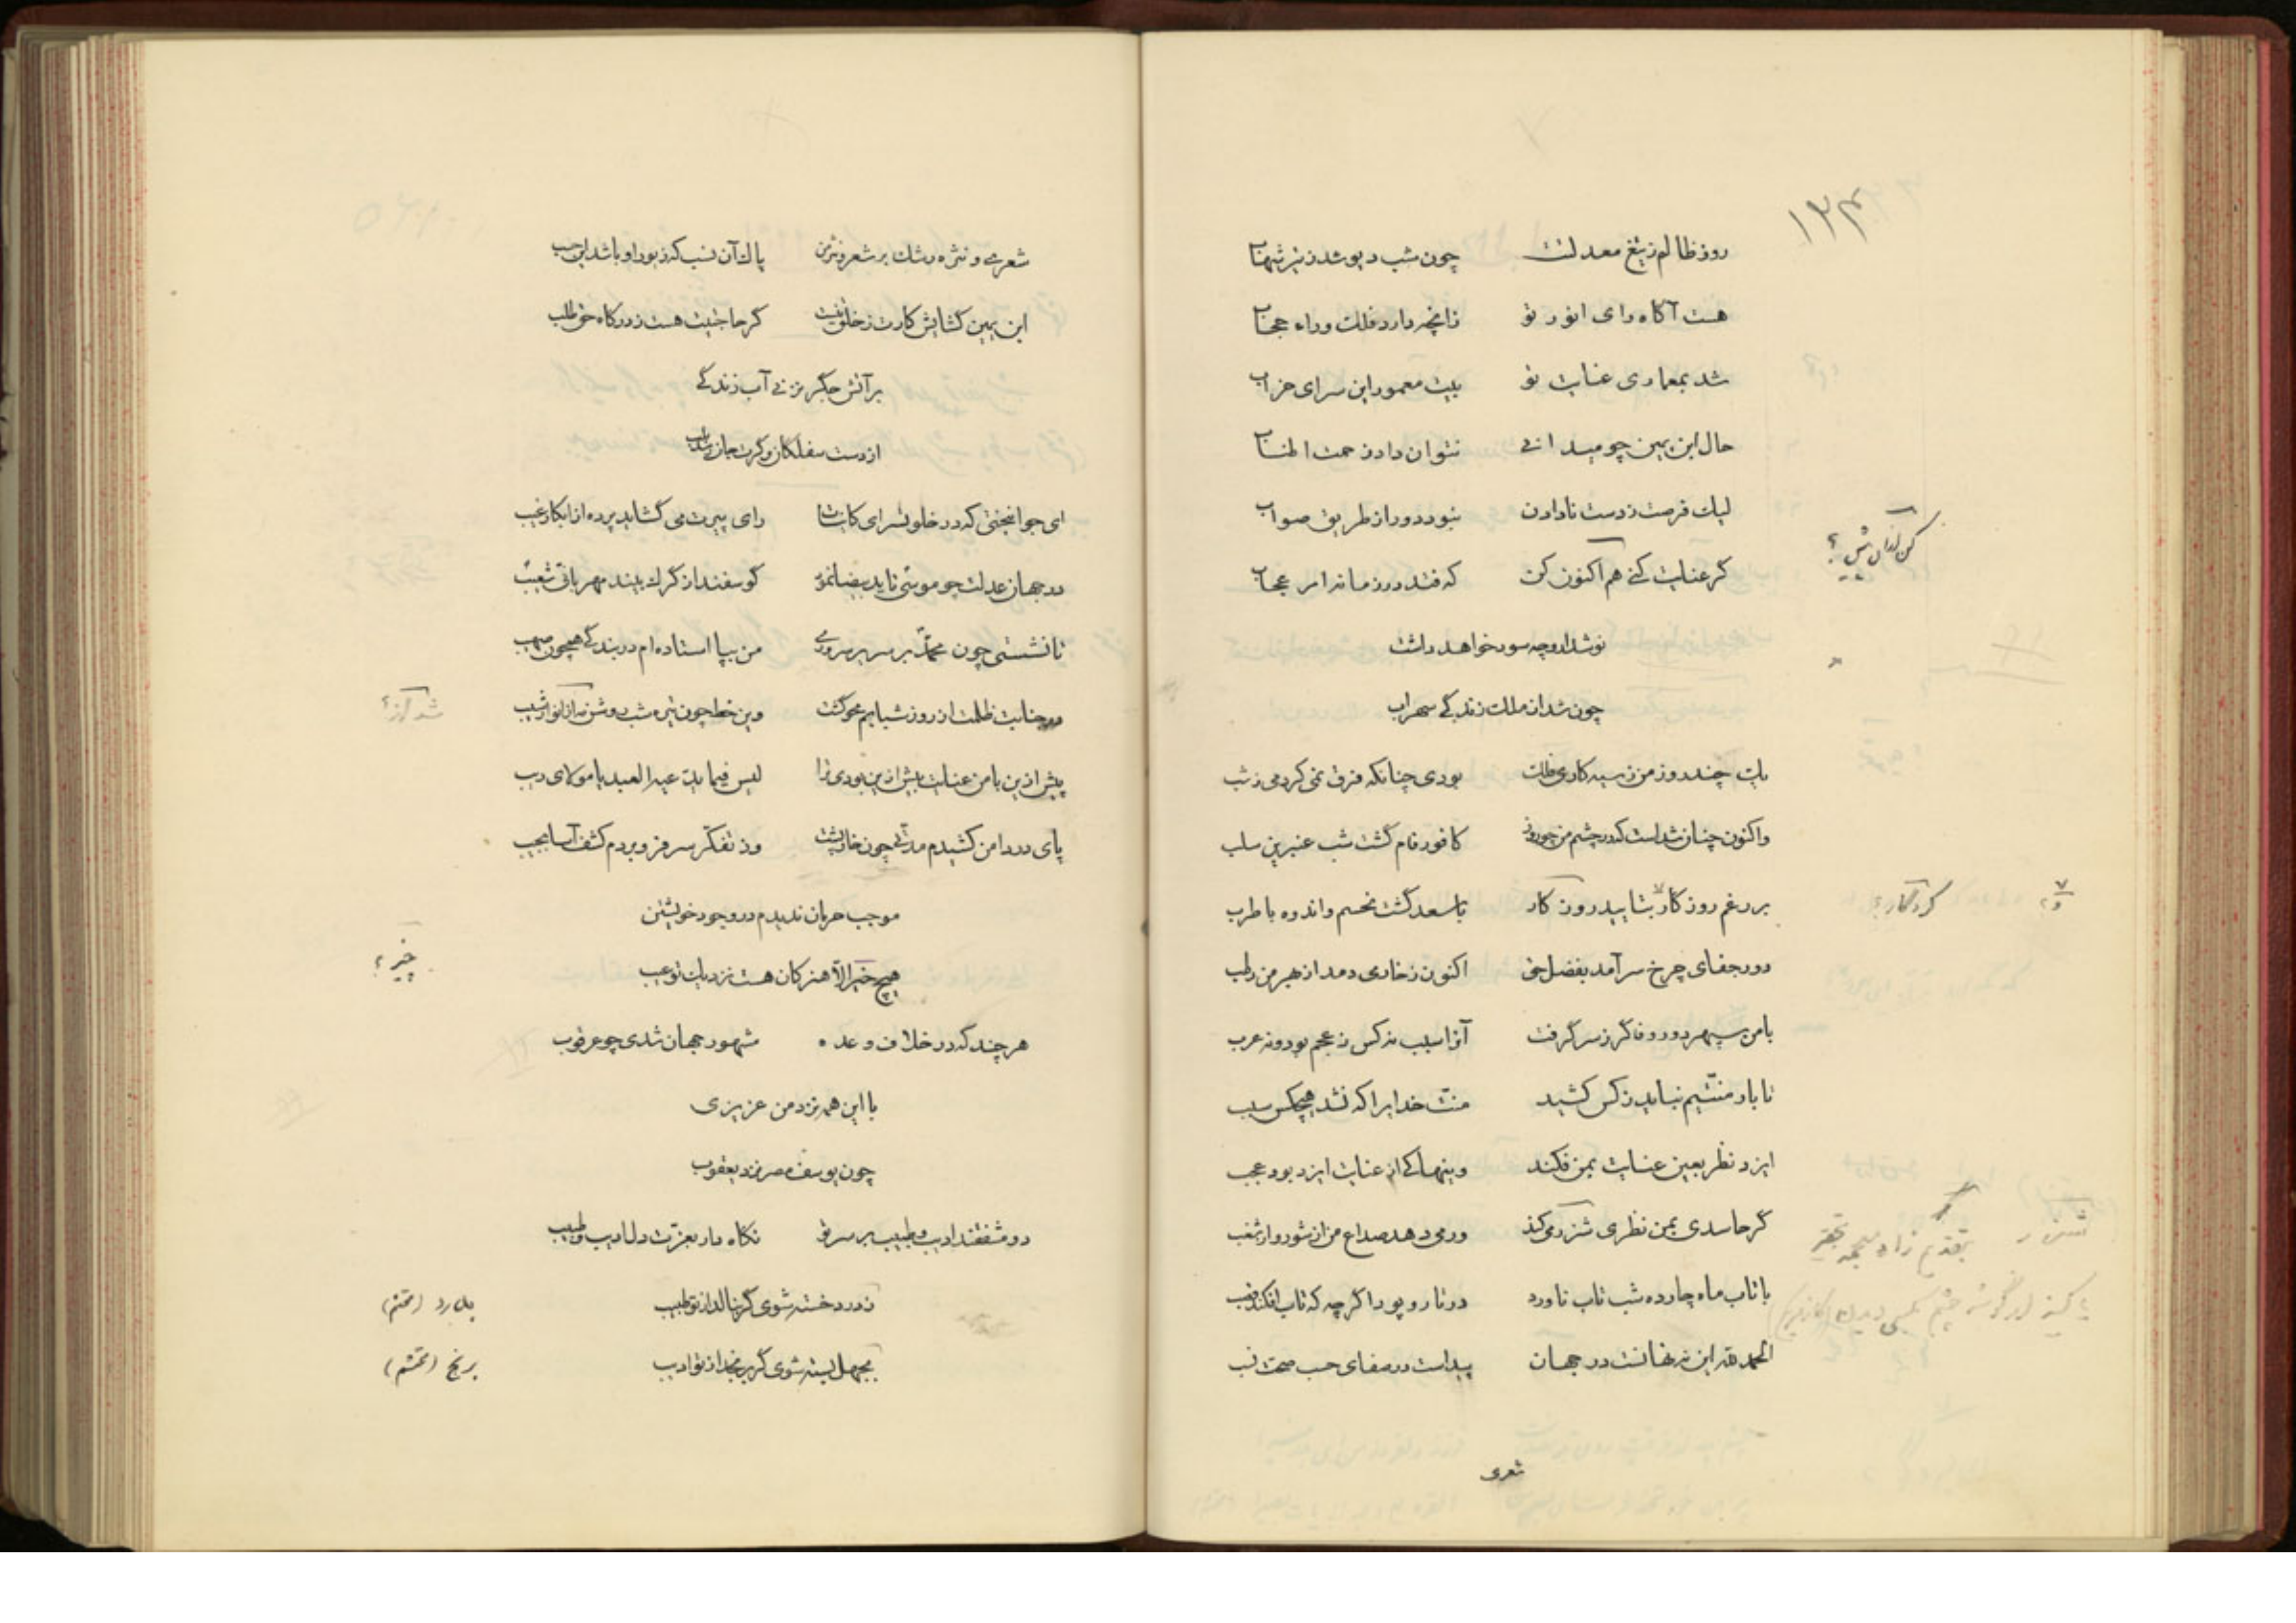 ۱۳۴
روز ظالم ز تیغ معدلتت چون شب دیو شد ز تیر شهاب
هست آگاه رای انور تو زانچه دارد فلک وراء حجاب
شد بمعماری عنایت تو بیت معمور این سرای خراب
حال ابن یمین چو میدانی نتوان داد زحمت اطناب
لیک فرصت ز دست نادادن نبود دور از طریق صواب
گر عنایت کنی هم اکنون کن که فتد در زمانه امر عجاب
نوشدارو چه سود خواهد داشت
چون شد از ملک زندگی سهراب
یک چند روز من ز سیه کاری فلک بودی چنانکه فرق نمی کردمی ز شب
واکنون چنان شد است که در چشم من چو روز کافور فام گشت شب عنبرین سلب
بر رغم روزگار بتایید روزگار با سعد گشت نحسم و اندوه با طرب
دور جفای چرخ سر آمد بفضل حق اکنون ز خار می دمد از بهر من رطب
با من سپهر دور وفا گر ز سر گرفت آنرا سبب نه کس ز عجم بود و نه عرب
تا بار منتیم نباید ز کس کشید منت خدایرا که نشد هیچکس سبب
ایزد نظر بعین عنایت بمن فکند وینها کی از عنایت ایزد بود عجب
گر حاسدی بمن نظری شزر می کند ور می دهد صداع من از شور و از شغب
با تاب ماه چارده شب تاب ناورد در تار و پود اگر چه که تاب افکند قصب
الحمد لله این نه نهانست در جهان پیداست در صفای حسب صحت نسب
شعری
شعر من و نثره رشک بر شعر و نثر من پاک آن نسب که زیور او باشد این حسب
ابن یمین گشایش کارت ز خلق نیست گر حاجتیت هست ز درگاه حق طلب
بر آتش جگر مزنی آب زندگی
از دست سفلگان وگرت جان رسد بلب
ای جوانبختی که در خلوتسرای کاینات رای پیرت می گشاید پرده از ابکار غیب
در جهان عدلت چو موسی تا ید بیضا نمود گوسفند از گرگ بیند مهربانی شعیب
تا نشستی چون محمد بر سریر سروری من بپا استاده ام در بندگی همچون صهیب
در جنابت ظلمت از روز شبابم محو گشت وین خط چون تیره شب روشن شد از انوار شیب
پیش ازین با من عنایت بیش ازین بودی ترا لیس فیما یدعیه العبد یا مولای ریب
پای در دامن کشیدم مدتی چون خارپشت وز تفکر سر فرو بردم کشف آسا بجیب
موجب حرمان ندیدم در وجود خویشتن
هیچ خیر الا هنر کان هست نزدیک تو عیب
خیر؟
هر چند که در خلاف وعده مشهور جهان شدی چو عرقوب
با این همه نزد من عزیزی
چون یوسف مصر نزد یعقوب
دو مشفقند ادیب و طبیب بر سر تو نگاه دار بعزت دل ادیب و طبیب
ز درد خسته شوی گر بنالد از تو طبیب
بجهل بسته شوی گر برنجد از تو ادیب